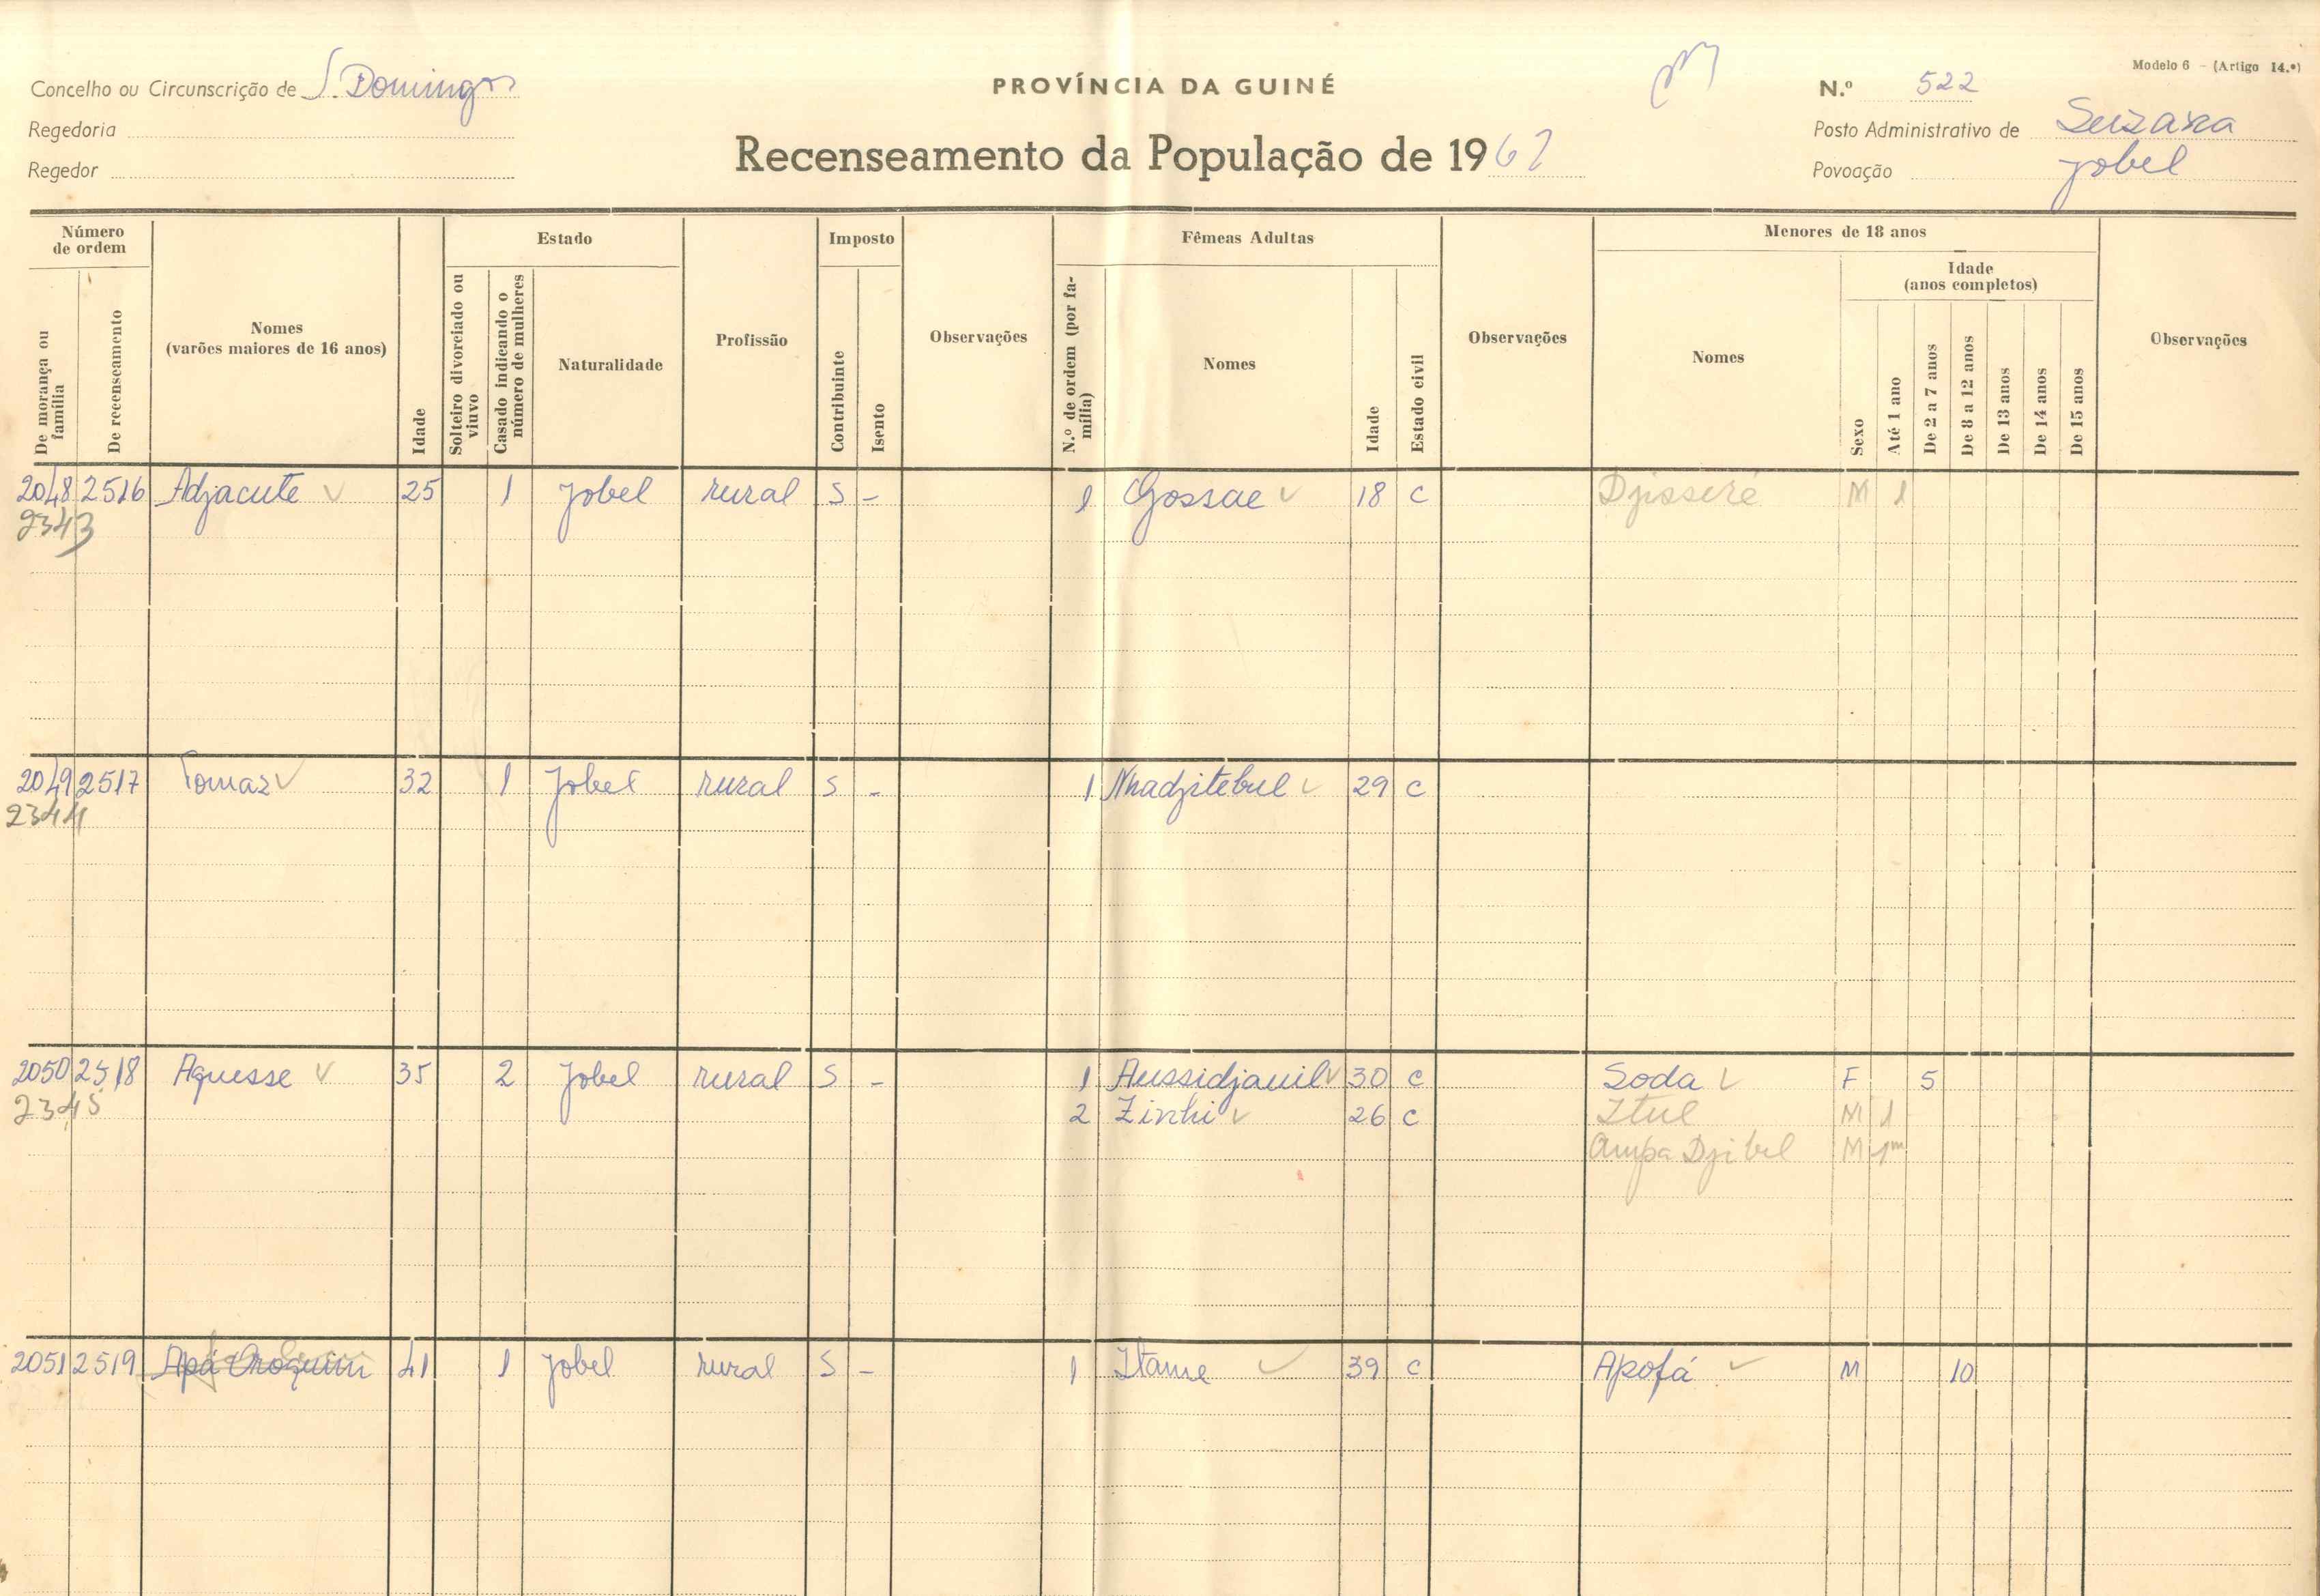 Modelo 6 - (Artigo 14.º)
Concelho ou Circunscrição de S. Domingos
PROVÍNCIA DA GUINÉ
N.º 522
Regedoria
Posto Administrativo de Suzana
Regedor
Recenseamento da População de 196
Povoação Jobel
Número de ordem
Estado
Imposto
Fêmeas Adultas
Menores de 18 anos
Idade (anos completos)
De morança ou família
De recenseamento
Nomes (varões maiores de 16 anos)
Idade
Solteiro divorciado ou viuvo
Casado indicando o número de mulheres
Naturalidade
Profissão
Contribuinte
Isento
Observações
N.º de ordem (por família)
Nomes
Idade
Estado civil
Observações
Nomes
Sexo
Até 1 ano
De 2 a 7 anos
De 8 a 12 anos
De 13 anos
De 14 anos
De 15 anos
Observações
2048 2516 Adjacute 25 1 Jobel rural S - 1 Gossae 18 C Djisseré M 1
2343
2049 2517 Tomaz 32 1 Jobel rural S - 1 Nhadjitebul 29 C
2344
2050 2518 Aquesse 35 2 Jobel rural S - 1 Aussidjauil 30 C Soda F 5
2345 2 Zinhi 26 C Itul M 1
Ampa Djibel M 1m
2051 2519 Apá 41 1 Jobel rural S - 1 Itame 39 C Apofá M 10